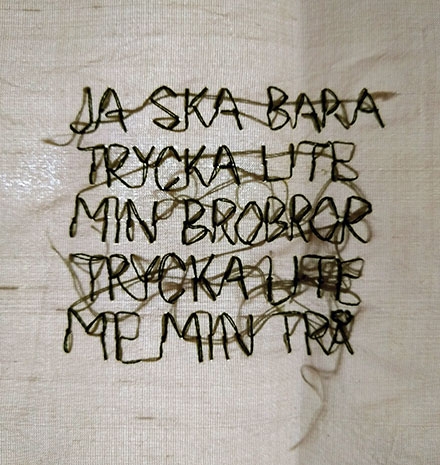 JA SKA BARA
TRYCKA LITE
MIN BROBROR
TRYCKA LITE
ME MIN